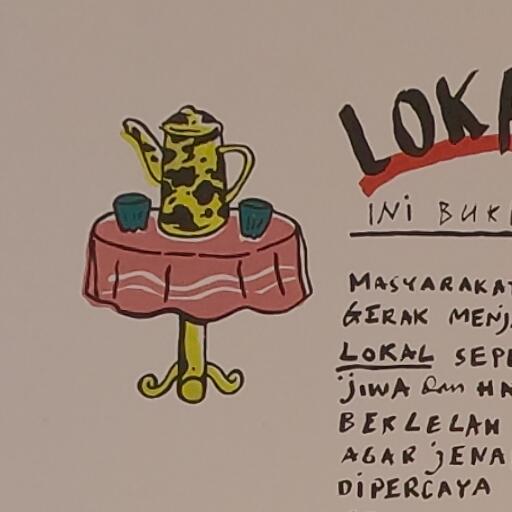 LOKA
INI BUK
MASYARAKAT
GERAK MENJ
LOKAL SEPE
JIWA dan HA
BERLELAH
AGAR JENA
DIPERCAYA